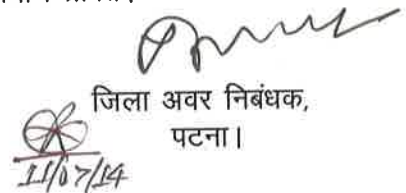 जिला अवर निबंधक,
पटना।
11/07/14